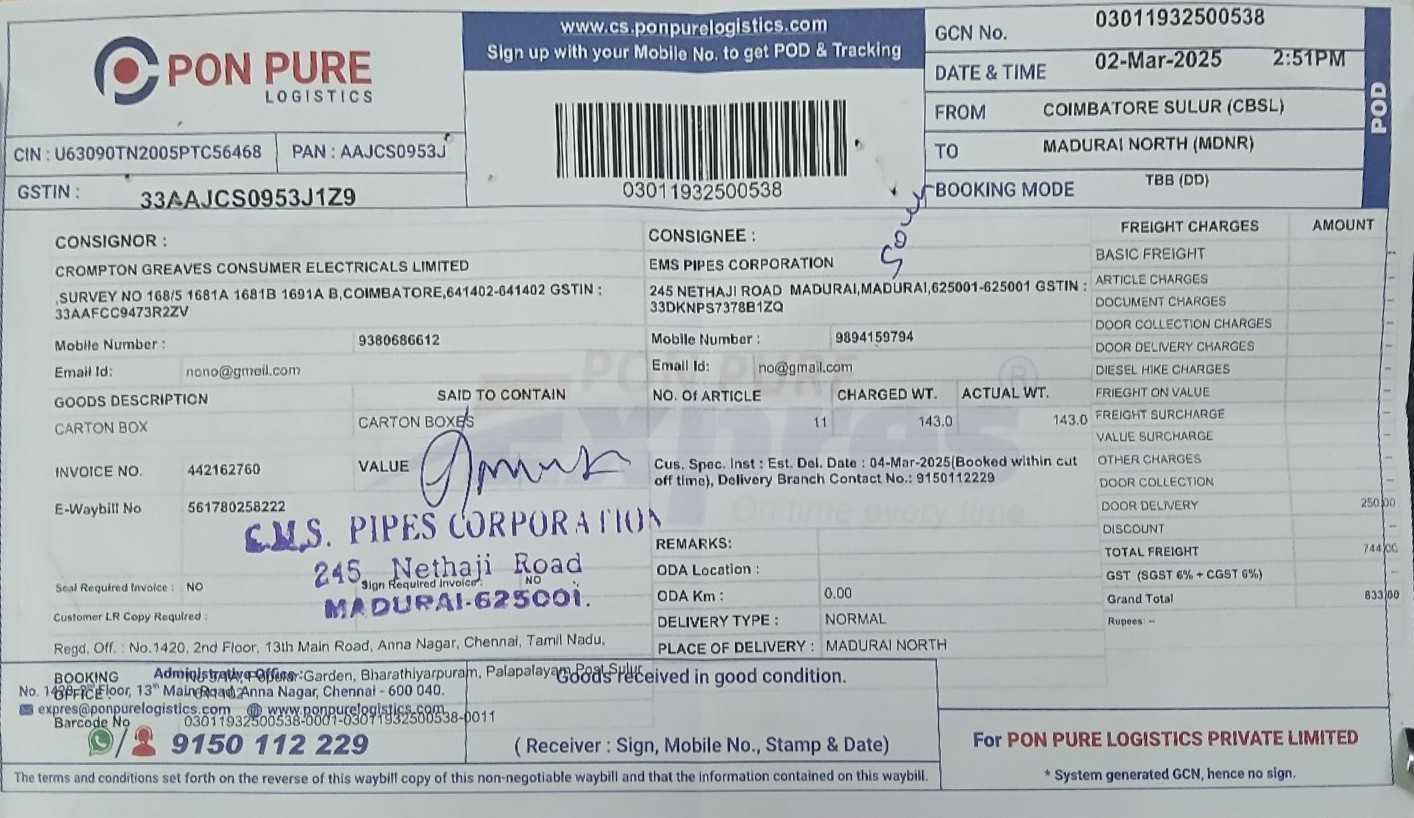 PON PURE
LOGISTICS
www.cs.ponpurelogistics.com
Sign up with your Mobile No. to get POD & Tracking
GCN No. 03011932500538
DATE & TIME 02-Mar-2025 2:51PM
FROM COIMBATORE SULUR (CBSL)
TO MADURAI NORTH (MDNR)
BOOKING MODE TBB (DD)
POD
CIN : U63090TN2005PTC56468 PAN : AAJCS0953J
GSTIN : 33AAJCS0953J1Z9
03011932500538
CONSIGNOR :
CROMPTON GREAVES CONSUMER ELECTRICALS LIMITED
,SURVEY NO 168/5 1681A 1681B 1691A B,COIMBATORE,641402-641402 GSTIN :
33AAFCC9473R2ZV
Mobile Number : 9380686612
Email Id: nono@gmail.com
CONSIGNEE :
EMS PIPES CORPORATION
245 NETHAJI ROAD MADURAI,MADURAI,625001-625001 GSTIN :
33DKNPS7378B1ZQ
Mobile Number : 9894159794
Email Id: no@gmail.com
GOODS DESCRIPTION SAID TO CONTAIN NO. Of ARTICLE CHARGED WT. ACTUAL WT.
CARTON BOX CARTON BOXES 11 143.0 143.0
INVOICE NO. 442162760 VALUE
E-Waybill No 561780258222
Cus. Spec. Inst : Est. Del. Date : 04-Mar-2025(Booked within cut
off time), Delivery Branch Contact No.: 9150112229
PON PURE
Expres
On time every time
E.M.S. PIPES CORPORATION
245, Nethaji Road
MADURAI-625001.
Seal Required Invoice : NO Sign Required Invoice: NO
Customer LR Copy Required :
REMARKS:
ODA Location :
ODA Km : 0.00
DELIVERY TYPE : NORMAL
PLACE OF DELIVERY : MADURAI NORTH
FREIGHT CHARGES AMOUNT
BASIC FREIGHT -
ARTICLE CHARGES -
DOCUMENT CHARGES -
DOOR COLLECTION CHARGES -
DOOR DELIVERY CHARGES -
DIESEL HIKE CHARGES -
FRIEGHT ON VALUE -
FREIGHT SURCHARGE -
VALUE SURCHARGE -
OTHER CHARGES -
DOOR COLLECTION -
DOOR DELIVERY 250.00
DISCOUNT -
TOTAL FREIGHT 744.00
GST (SGST 6% + CGST 6%) -
Grand Total 833.00
Rupees: --
Regd. Off. : No.1420, 2nd Floor, 13th Main Road, Anna Nagar, Chennai, Tamil Nadu,
BOOKING OFFICE : Garden, Bharathiyarpuram, Palapalayam Post Sulur
Administrative Office :
No. 1420 2nd Floor, 13th Main Road, Anna Nagar, Chennai - 600 040.
expres@ponpurelogistics.com www.ponpurelogistics.com
Barcode No 03011932500538-0001-03011932500538-0011
9150 112 229
Goods received in good condition.
( Receiver : Sign, Mobile No., Stamp & Date)
For PON PURE LOGISTICS PRIVATE LIMITED
* System generated GCN, hence no sign.
The terms and conditions set forth on the reverse of this waybill copy of this non-negotiable waybill and that the information contained on this waybill.